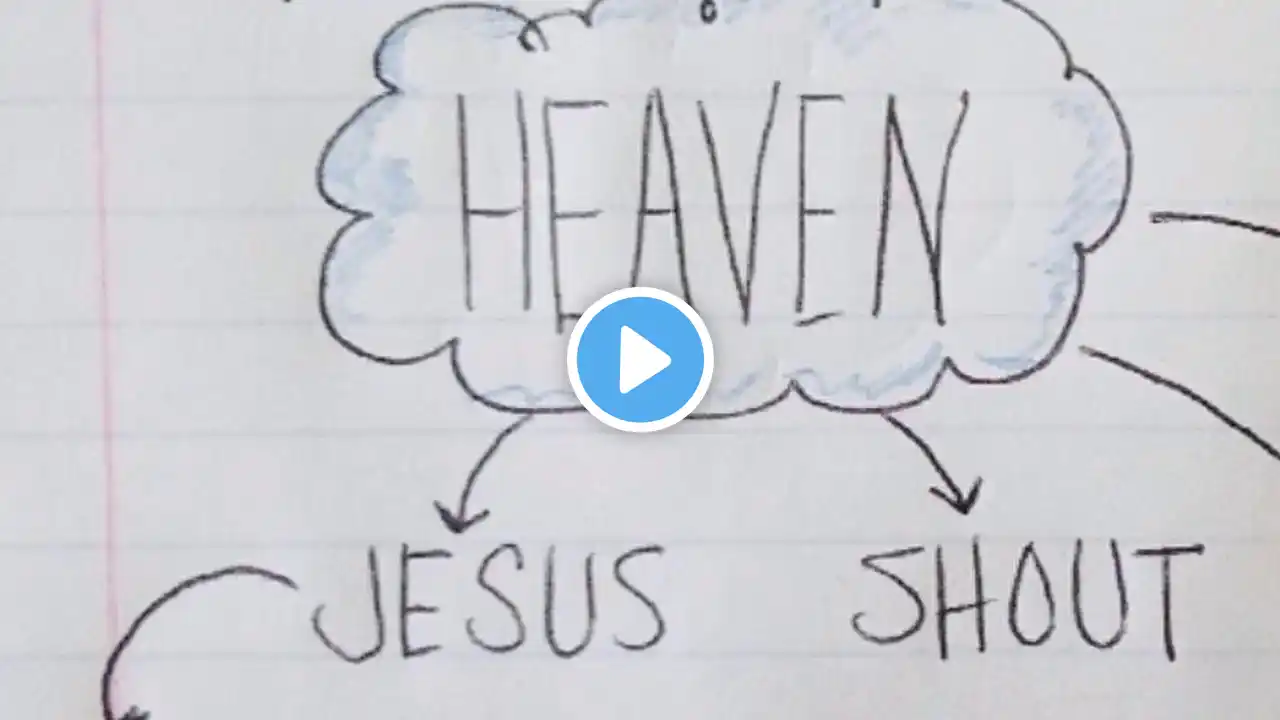 HEAVEN
JESUS SHOUT